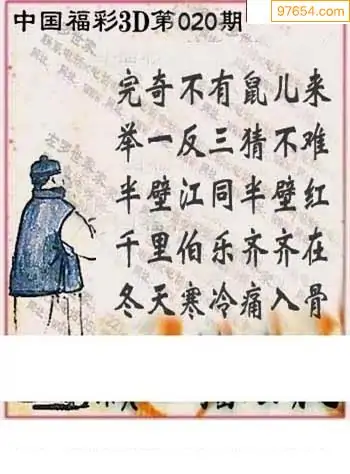 97654.com
中国福彩3D第020期
完奇不有鼠儿来
举一反三猜不难
半壁江同半壁红
千里伯乐齐齐在
冬天寒冷痛入骨